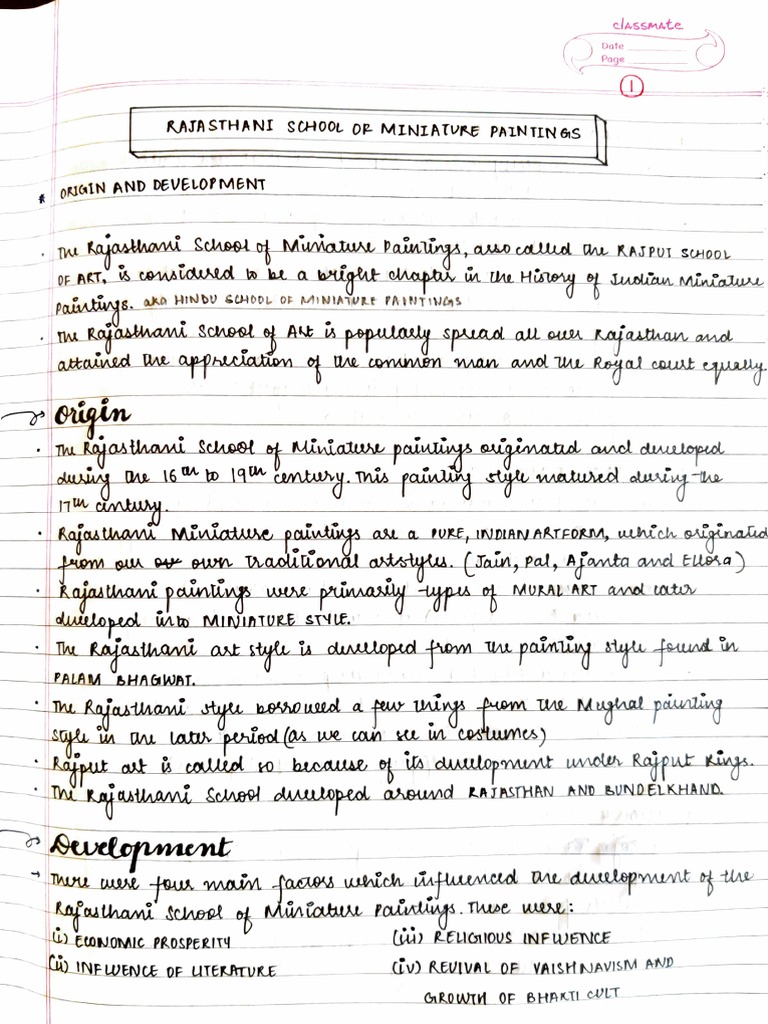 classmate
Date
Page
1
RAJASTHANI SCHOOL OF MINIATURE PAINTINGS
* ORIGIN AND DEVELOPMENT
. The Rajasthani School of Miniature Paintings, also called the RAJPUT SCHOOL
OF ART, is considered to be a bright chapter in the History of Indian Miniature
Paintings. aka HINDU SCHOOL OF MINIATURE PAINTINGS
. The Rajasthani School of Art is popularly spread all over Rajasthan and
attained the appreciation of the common man and the Royal court equally.
→ Origin
. The Rajasthani School of Miniature paintings originated and developed
during the 16th to 19th century. This painting style matured during the
17th century.
. Rajasthani Miniature paintings are a PURE, INDIAN ARTFORM, which originated
from our own traditional artstyles. (Jain, Pal, Ajanta and Ellora)
. Rajasthani paintings were primarily types of MURAL ART and later
developed into MINIATURE STYLE.
. The Rajasthani art style is developed from the painting style found in
PALAM BHAGWAT.
. The Rajasthani style borrowed a few things from the Mughal painting
style in the later period (as we can see in costumes)
. Rajput art is called so because of its development under Rajput Kings.
. The Rajasthani School developed around RAJASTHAN AND BUNDELKHAND.
→ Development
→ There were four main factors which influenced the development of the
Rajasthani School of Miniature Paintings. These were:
(i) ECONOMIC PROSPERITY (iii) RELIGIOUS INFLUENCE
(ii) INFLUENCE OF LITERATURE (iv) REVIVAL OF VAISHNAVISM AND
GROWTH OF BHAKTI CULT